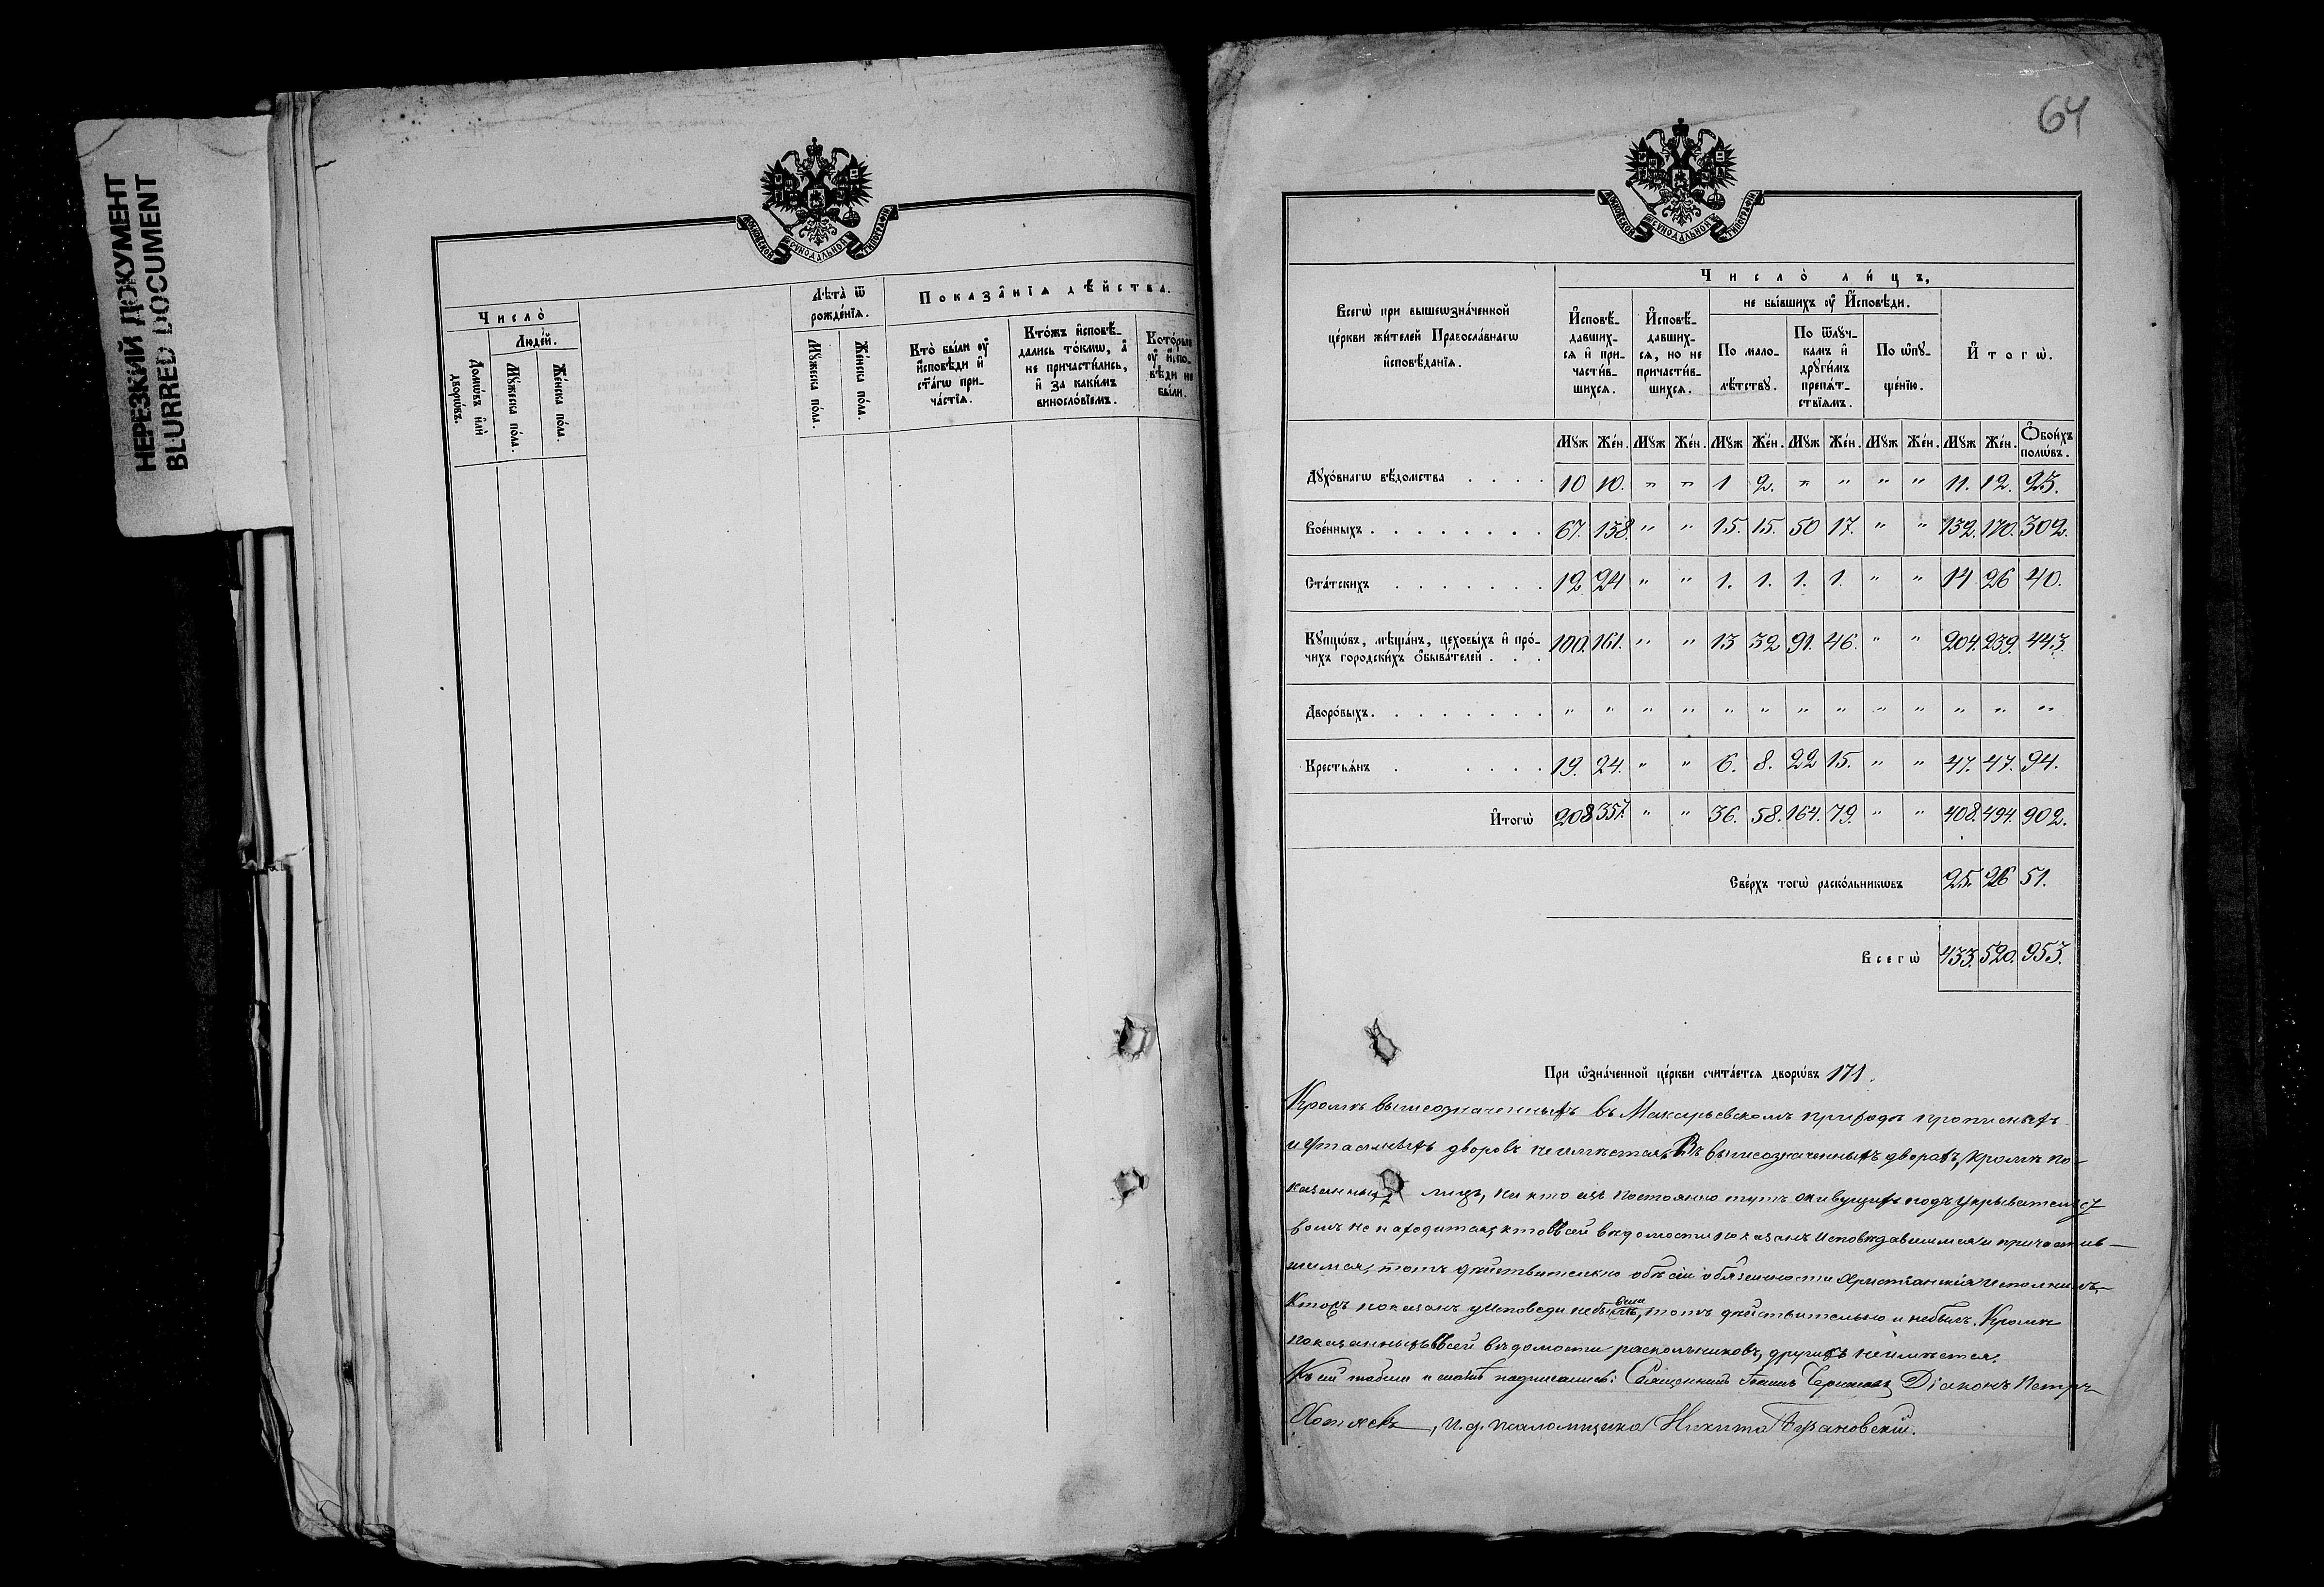 НЕРЕЗКИЙ ДОКУМЕНТ
BLURRED DOCUMENT
МОСКОВСКОЙ СУНОДАЛЬНОЙ ТИПОГРАФІИ
Число̀
Люде́й.
Домѡ́въ и҆лѝ дворѡ́въ.
Мꙋ́жеска по́ла.
Же́нска по́ла.
Лѣ́та ѿ рожде́нїѧ.
Мꙋ́жеска по́ла.
Же́нска по́ла.
Показа̑нїѧ дѣ́йства.
Кто̀ бы́ли ᲂу҆ и҆сповѣ́ди и҆ ст҃а́гѡ прича́стїѧ.
Кто́жъ и҆сповѣ́дались то́кмѡ, а҆ не причасти́лись, и҆ за каки́мъ виносло́вїемъ.
Кото́рые ᲂу҆ и҆спо-
вѣ́ди не
бы́ли.
64
МОСКОВСКОЙ СУНОДАЛЬНОЙ ТИПОГРАФІИ
Всегѡ̀ при вышеѡзна́ченной
це́ркви жи́телей Правосла́внагѡ
и҆сповѣ́данїѧ.
Число̀ ли́цъ,
И҆сповѣ́давшихсѧ и҆ причасти́вшихсѧ.
И҆сповѣ́давшихсѧ, но не причасти́вшихсѧ.
не бы́вшихъ ᲂу҆ И҆сповѣ́ди.
По мало-
лѣ́тствꙋ.
По ѿлꙋ́чкамъ и҆ дрꙋги̑мъ препѧ́тствїѧмъ.
По ѡ҆пꙋ-
ще́нїю.
И҆тогѡ̀.
Мꙋж Же́н. Мꙋж Же́н. Мꙋж Же́н. Мꙋж Же́н. Мꙋж Же́н. Мꙋж Же́н. Ѻ҆бои́хъ полѡ́въ.
Дꙋхо́внагѡ вѣ́домства . . . . 10 10. " " 1 2. " " " " 11. 12. 23.
Вое́нныхъ . . . . . . . . 67. 138. " " 15. 15. 50 17. " " 132. 170. 302.
Ста́тскихъ . . . . . . . 12 24 " " 1. 1. 1. 1. " " 14 26 40.
Кꙋпцѡ́въ, мѣща́нъ, цеховы́хъ и҆ про́-
чихъ городски́хъ ѻ҆быва́телей . . . 100. 161. " " 13 32 91. 46. " " 204. 239. 443.
Дворо́выхъ. . . . . . . . " " " " " " " " " " " " "
Крестьѧ́нъ . . . . . 19. 24. " " 6. 8. 22 15. " " 47. 47. 94.
И҆тогѡ̀ 208 357. " " 36. 58. 164. 79. " " 408. 494. 902.
Све́рхъ тогѡ̀ раско́льникѡвъ 25. 26 51.
Всегѡ̀ 433. 520. 953.
При ѡ҆зна́ченной це́ркви счита́етсѧ дворѡ́въ 171.
Кромѣ вышеозначенныхъ въ Макарьевскомъ приходѣ прописныхъ
и утаенныхъ дворовъ не имѣется. Въ вышеозначенныхъ дворахъ, кромѣ по-
казанныхъ лицъ, ни кто изъ постоянно тутъ живущихъ подъ укрывательст
вомъ не находится, кто въ сей вѣдомости показанъ исповѣдавшимся и причастив-
шимся, тотъ дѣйствительно обѣ сіи обязанности Христіанскія исполнилъ,
Кто же показанъ у исповѣди не былъ, тотъ дѣйствительно и не былъ. Кромѣ
показанныхъ въ сей вѣдомости раскольниковъ, другихъ не имѣется.
Къ сей подписались: Священникъ Іоаннъ Діаконъ Петръ
и. д. псаломщика Никита